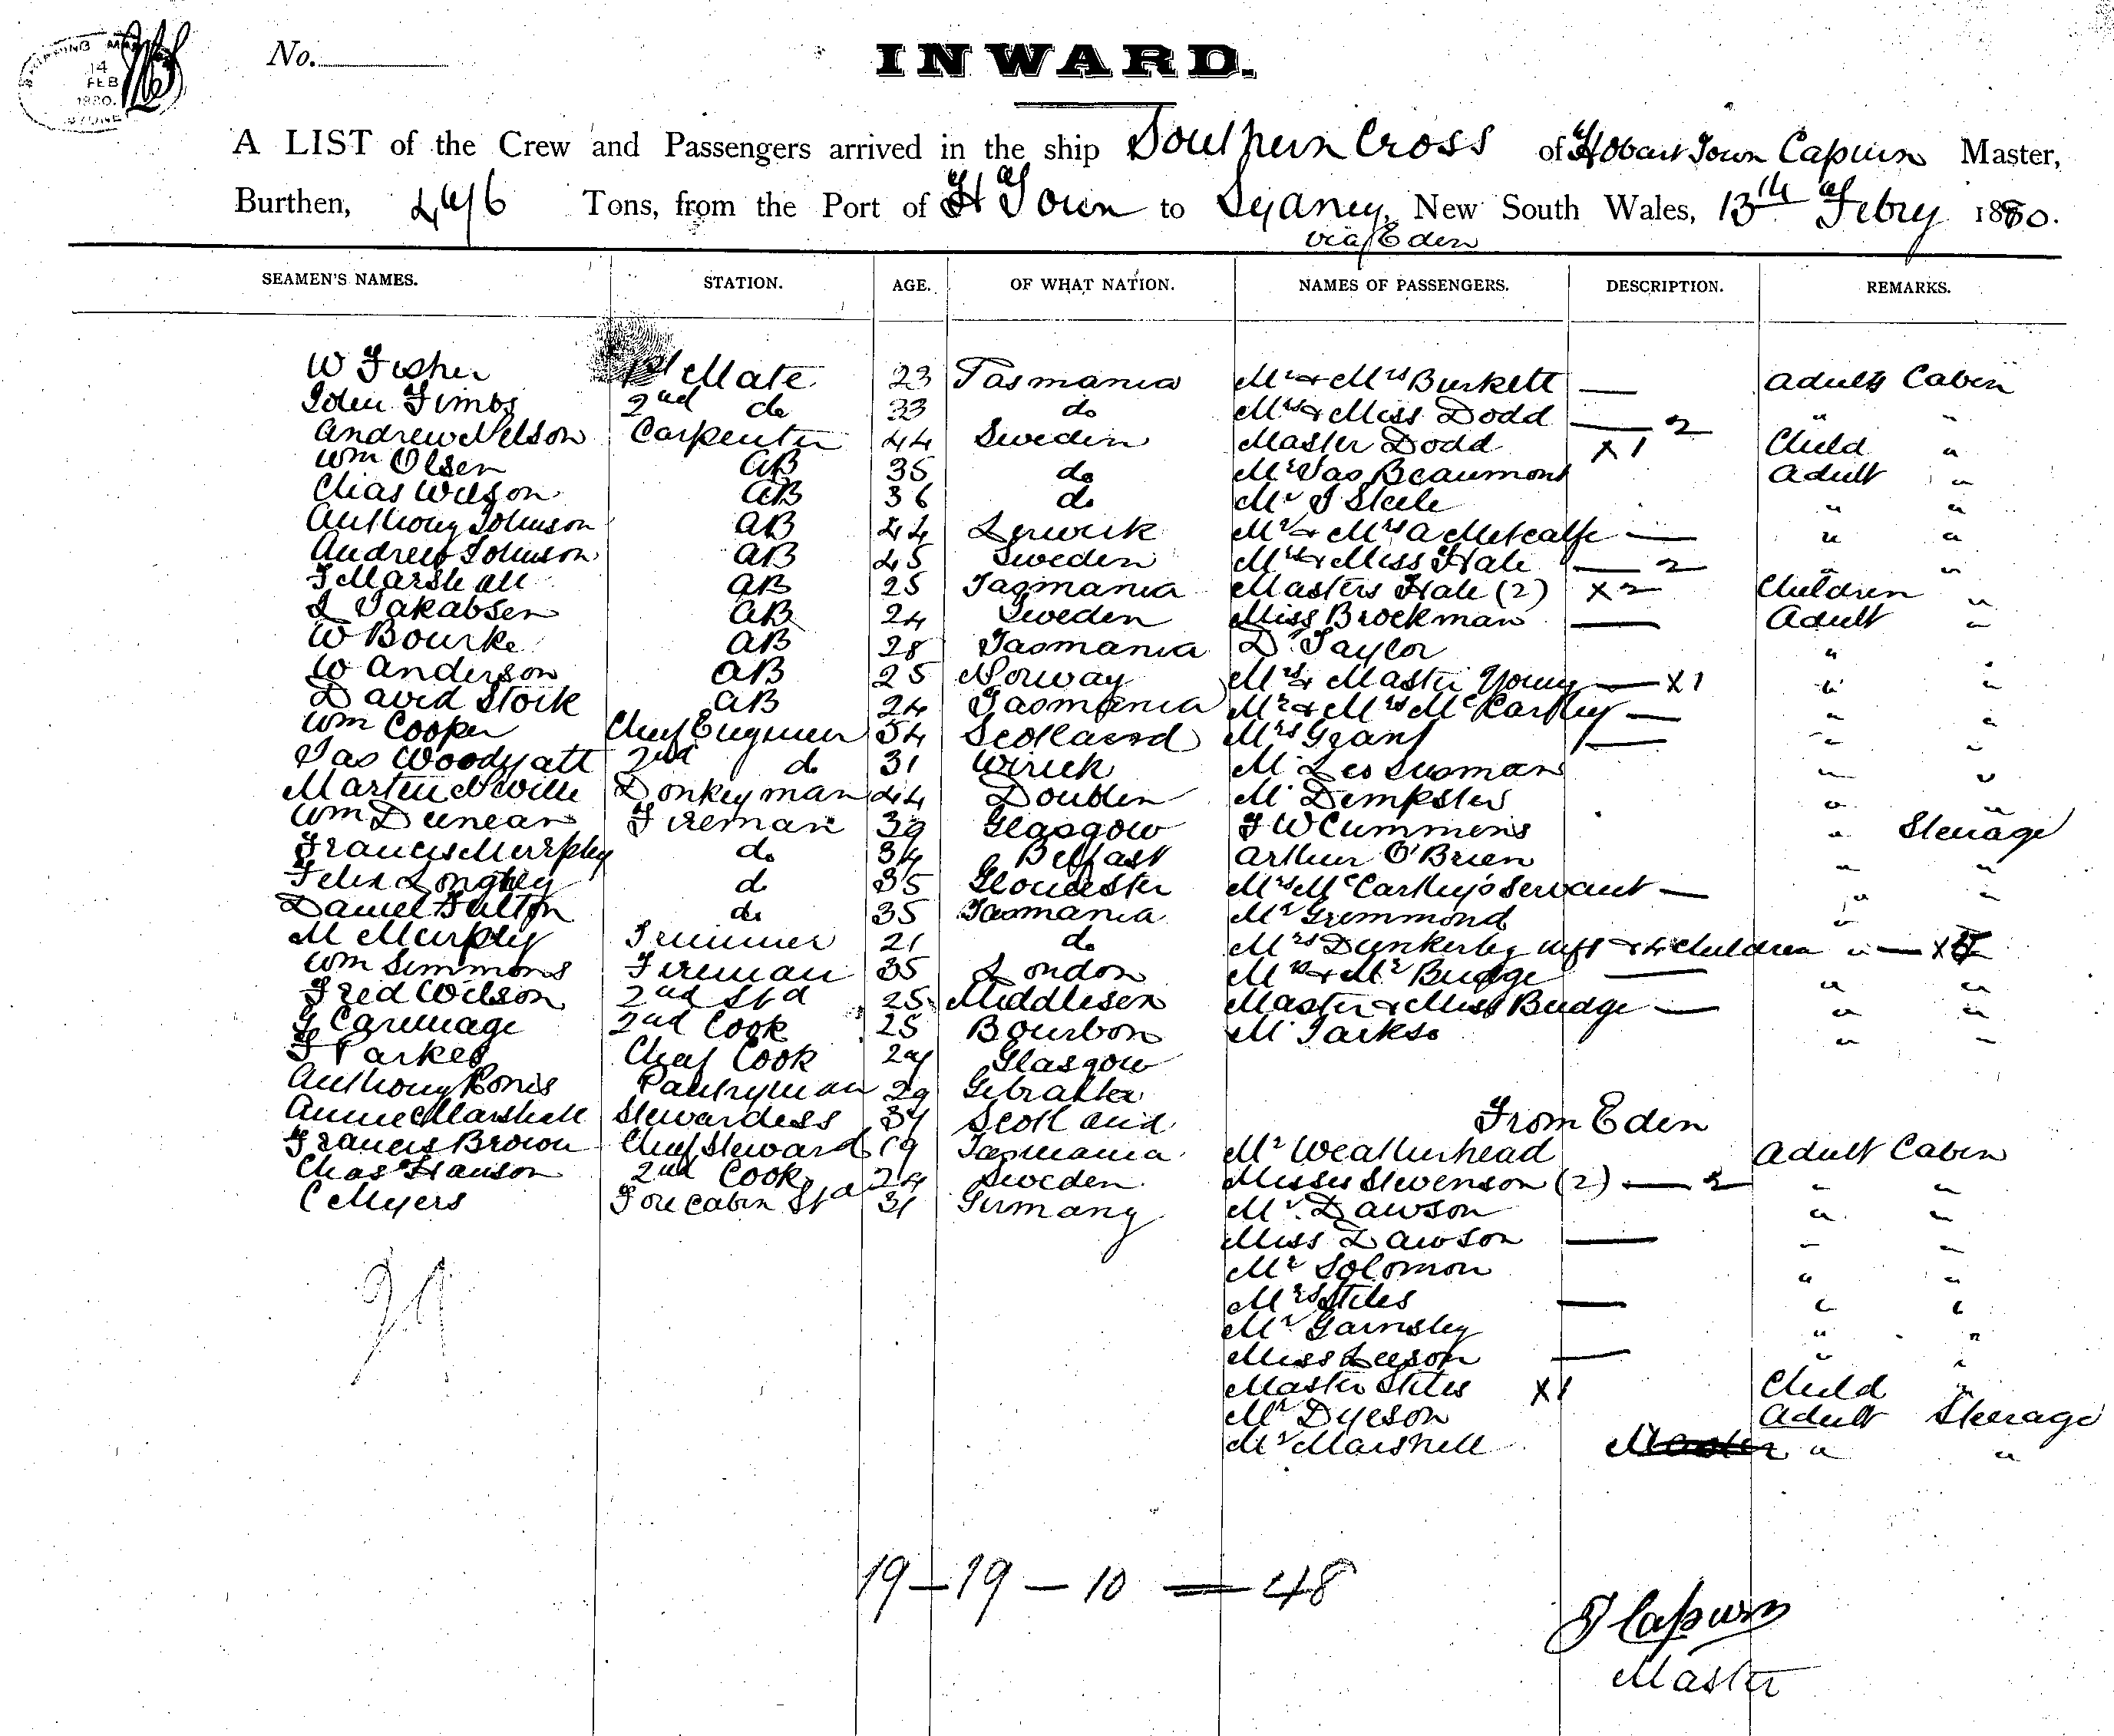 SHIPPING MA
14
FEB
1880.
SYDNEY
No.
INWARD.
A LIST of the Crew and Passengers arrived in the ship Southern Cross of Hobart Town Capurn Master,
Burthen, Tons, from the Port of H Town to Sydney, New South Wales, 13th Febry 1880.
via Eden
SEAMEN'S NAMES. STATION. AGE. OF WHAT NATION. NAMES OF PASSENGERS. DESCRIPTION. REMARKS.
W Fisher 1st Mate 23 Tasmania Mr & Mrs Burkett — Adults Cabin
John Timbs 2nd do 33 do Mrs & Miss Dodd — 2 " "
Andrew Nelson Carpenter 44 Sweden Master Dodd X 1 Child "
Wm Olsen AB 35 do Mr Jas Beaumont Adult "
Chas Wilson AB 36 do Mr J Steele " "
Anthony Johnson AB 44 Lerwick Mr & Mrs A Metcalfe — " "
Andrew Johnson AB 45 Sweden Mrs & Miss Hale — 2 " "
J Marshall AB 25 Tasmania Masters Hale (2) X 2 Children "
L Jakabsen AB 24 Sweden Miss Brockman — Adult "
W Bourke AB 28 Tasmania Dr Taylor "
W Anderson AB 25 Norway Mrs & Master Young — X 1 " "
David Stork AB 24 Tasmania Mr & Mrs McCarthy — " "
Wm Cooper Chief Engineer 54 Scotland Mrs Grant — " "
Jas Woodyatt 2nd do 31 Wick Mr Leo Susman " "
Martin Neville Donkeyman 44 Doublin Mr Dempster " "
Wm Duncan Fireman 39 Glasgow J W Cummens " Steerage
Francis Murphy do 34 Belfast Arthur O'Brien " "
Felix Longhey do 35 Gloucester Mrs McCarthy's Servant — " "
Daniel Fulton do 35 Tasmania Mr Gremmond "
M Murphy Trimmer 21 do Mrs Dunkerley & 4 Children " —
Wm Simmons Fireman 35 London Mrs & Mr Budge — " "
Fred Wilson 2nd Std 25 Middlesex Master & Miss Budge — " "
2nd Cook 25 Bourbon Mr " "
J Parkes Chief Cook Glasgow
Anthony Ronis Pantryman 29 Gibralter
Annie Marshall Stewardess Scotland From Eden
Francis Brown Chief Steward 19 Tasmania Mr Weatherhead Adult Cabin
Chas Hanson 2nd Cook 24 Sweden Misses Stevenson (2) — 2 " "
C Myers Fore Cabin Std 31 Germany Mr Dawson " "
Miss Dawson — " "
Mr Solomon " "
Mrs Stiles — " "
Mr Garnsley " "
Miss Leeson — " "
Master Stiles X 1 Child "
29
Mr Dyeson Adult Steerage
Mr Marshell Master " "
19 — 19 — 10 = 48
J Capurn
Master